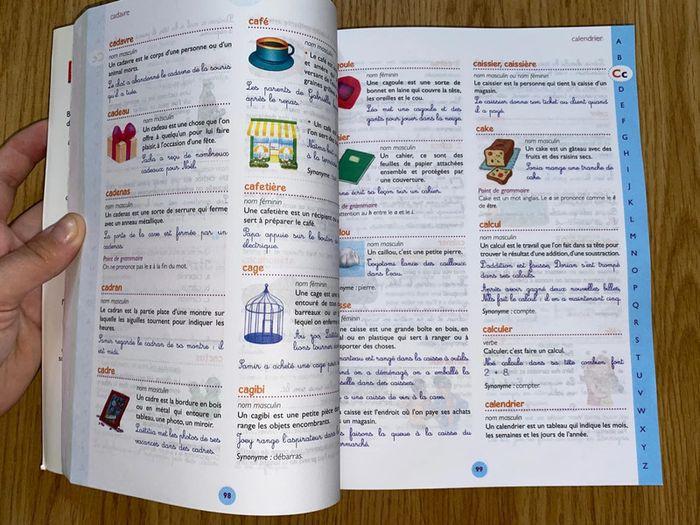 cadavre
cadavre
nom masculin
Un cadavre est le corps d'une personne ou d'un
animal morts.
Le chat a abandonné le cadavre de la souris
qu'il a tuée.
cadeau
nom masculin
Un cadeau est une chose que l'on
offre à quelqu'un pour lui faire
plaisir, à l'occasion d'une fête.
a reçu de nombreux
cadeaux pour Noël.
cadenas
nom masculin
Un cadenas est une sorte de serrure qui ferme
avec un anneau métallique.
La porte de la cave est fermée par un
cadenas.
Point de grammaire
On ne prononce pas le s à la fin du mot.
cadran
nom masculin
Le cadran est la partie plate d'une montre sur
laquelle les aiguilles tournent pour indiquer les
heures.
Samir regarde le cadran de sa montre : il
est midi.
cadre
nom masculin
Un cadre est la bordure en bois
ou en métal qui entoure un
tableau, une photo, un miroir.
Laëtitia met les photos de ses
vacances dans des cadres.
café
nom masculin
• Le café est
Les parents de Gabriel
après le repas.
• Un café
l'on sert des
Synonyme :
cafetière
nom féminin
Une cafetière est un récipient
sert à préparer le café.
Papa appuie sur le bouton
électrique.
cage
nom féminin
Une cage est
entourée de
barreaux ou
lequel on enferme
lions tournent
Samir a acheté une cage
cagibi
nom masculin
Un cagibi est une petite pièce
range les objets encombrants.
Joey range l'aspirateur dans
Synonyme : débarras.
98
calendrier
nom féminin
Une cagoule est une sorte de
bonnet en laine qui couvre la tête,
les oreilles et le cou.
Léo met une cagoule et des
gants pour jouer dans la neige.
nom masculin
Un cahier, ce sont des
feuilles de papier attachées
ensemble et protégées par
une couverture.
écrit sa leçon sur un cahier.
Point de grammaire
attention au h entre le a et le i.
nom masculin
Un caillou, c'est une petite pierre.
lance des cailloux
dans l'eau.
: pierre.
nom féminin
caisse est une grande boîte en bois, en
ou en plastique qui sert à ranger ou à
transporter des choses.
est rangé dans la caisse à outils.
on a déménagé, on a emballé la
vaisselle dans des caisses.
a une caisse de vin à la cave.
caisse, c'est l'endroit où l'on paye ses achats
un magasin.
faisons la queue à la caisse du
supermarché.
caissier, caissière
nom masculin ou nom féminin
Le caissier est la personne qui tient la caisse d'un
magasin.
Le caissier donne son ticket au client quand
il a payé.
cake
nom masculin
Un cake est un gâteau avec des
fruits et des raisins secs.
Sonia mange une tranche de
cake.
Point de grammaire
Cake est un mot anglais. Le a se prononce comme le è
de être.
calcul
nom masculin
Un calcul est le travail que l'on fait dans sa tête pour
trouver le résultat d'une addition, d'une soustraction.
L'addition est fausse, Dorian s'est trompé
dans ses calculs.
Après avoir gagné deux nouvelles billes,
Nils fait le calcul : il en a maintenant cinq.
Synonyme : compte.
calculer
verbe
Calculer, c'est faire un calcul.
Noé calcule dans sa tête combien font
2 + 8.
Synonyme : compter.
calendrier
nom masculin
Un calendrier est un tableau qui indique les mois,
les semaines et les jours de l'année.
99
A
B
Cc
D
E
F
G
H
I
J
K
L
M
N
O
P
Q
R
S
T
U
V
W
X
Y
Z